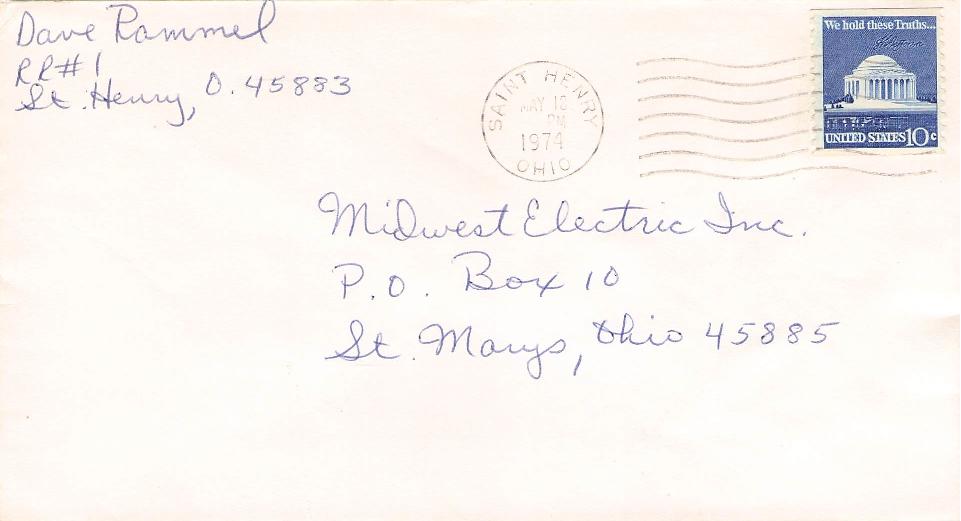 Dave Rammel
RR#1
St. Henry, O. 45883
SAINT HENRY
MAY 18
PM
1974
OHIO
We hold these Truths...
UNITED STATES 10c
Midwest Electric Inc.
P.O. Box 10
St. Marys, Ohio 45885